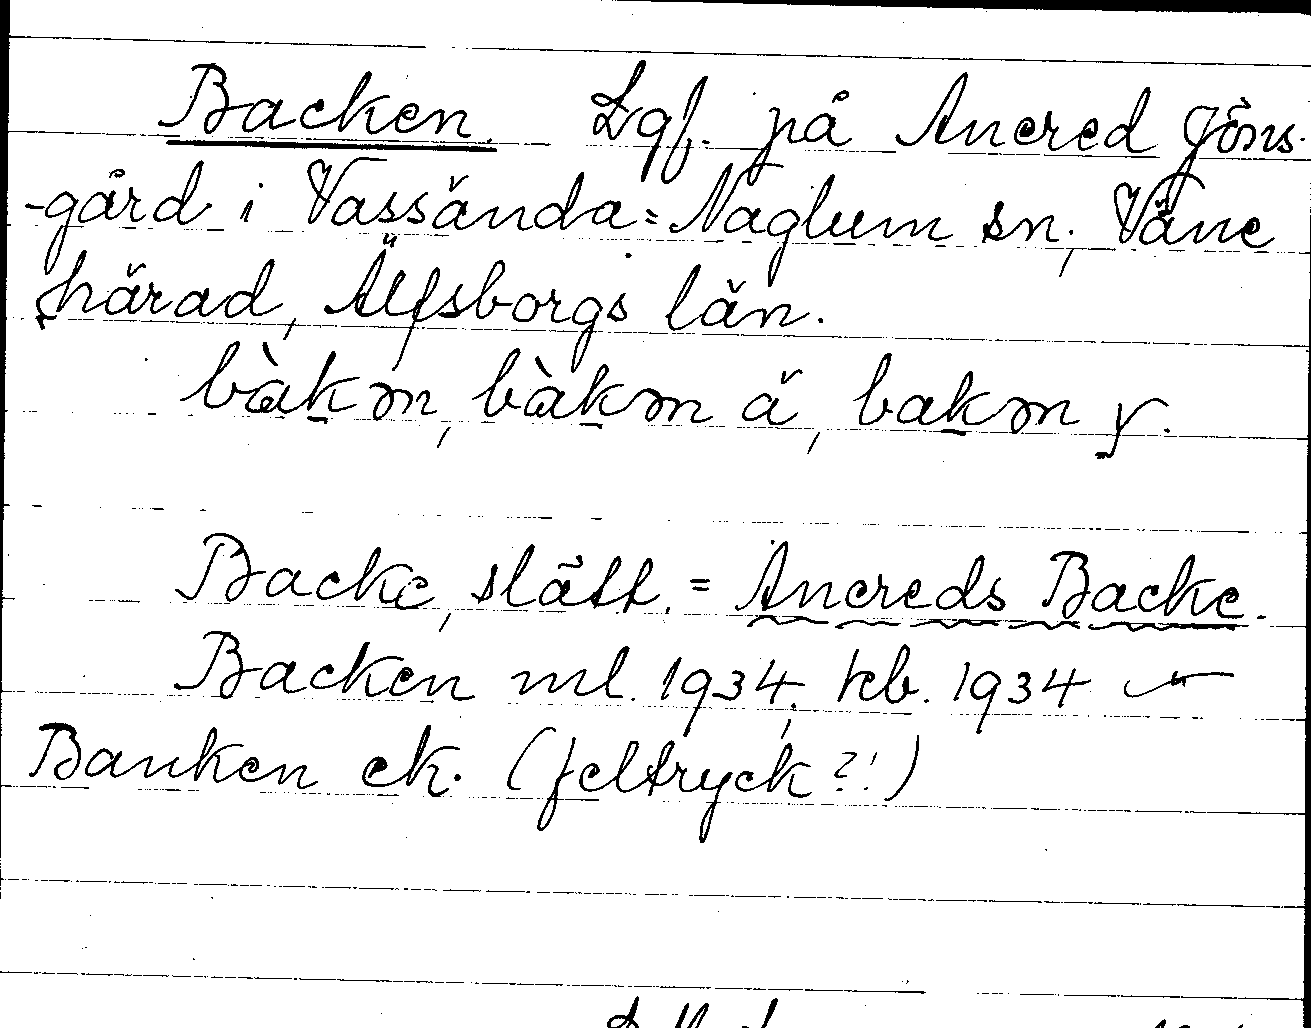 Backen. Lgf. på Anered Jöns-
-gård i Vassända=Naglum sn, Väne
härad, Älfsborgs län.
bàkm, bàkm ä, bakm y.
Backe, slätt. = Anereds Backe.
Backen ml. 1934, kb. 1934
Banken ek. (feltryck?!)